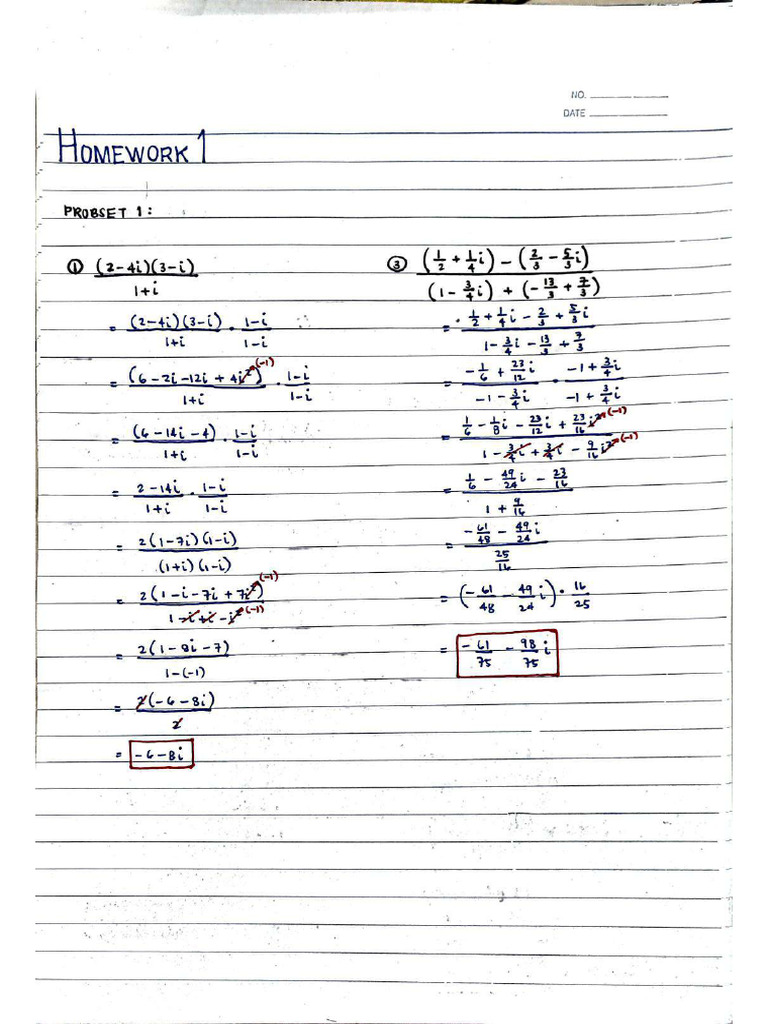 NO.
DATE
HOMEWORK 1
PROBSET 1:
① (2-4i)(3-i) / 1+i
= (2-4i)(3-i) / 1+i · 1-i / 1-i
= (6-2i-12i+4i²)(-1) / 1+i · 1-i / 1-i
= (6-14i-4) / 1+i · 1-i / 1-i
= 2-14i / 1+i · 1-i / 1-i
= 2(1-7i)(1-i) / (1+i)(1-i)
= 2(1-i-7i+7i²)(-1) / 1-i+i-i²(-1)
= 2(1-8i-7) / 1-(-1)
= 2(-6-8i) / 2
= -6-8i
③ (1/2 + 1/4 i) - (2/3 - 5/3 i) / (1 - 3/4 i) + (-13/3 + 7/3)
= 1/2 + 1/4 i - 2/3 + 5/3 i / 1 - 3/4 i - 13/3 + 7/3
= -1/6 + 23/12 i / -1 - 3/4 i · -1 + 3/4 i / -1 + 3/4 i
= 1/6 - 1/8 i - 23/12 i + 23/16 i²(-1) / 1 - 3/4 i + 3/4 i - 9/16 i²(-1)
= 1/6 - 49/24 i - 23/16 / 1 + 9/16
= -61/48 - 49/24 i / 25/16
= (-61/48 - 49/24 i) · 16/25
= -61/75 - 98/75 i